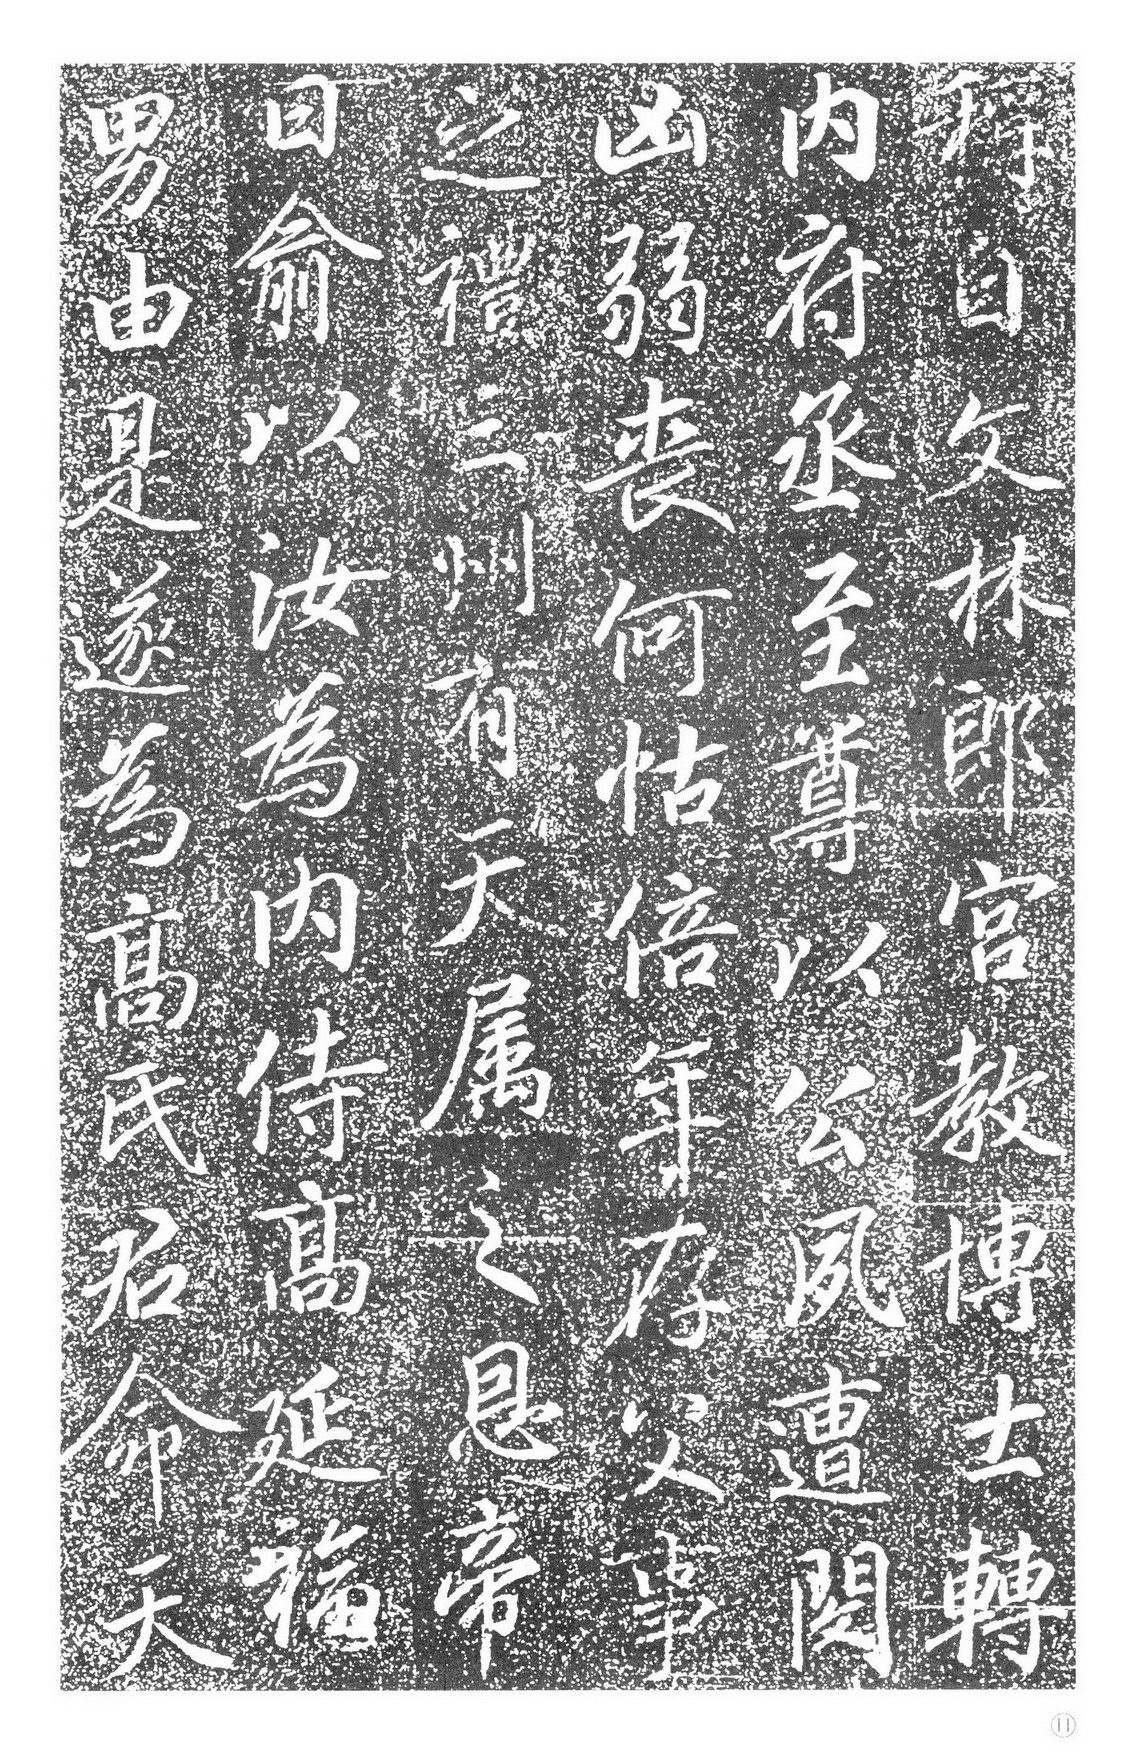 自文林郎宫教博士轉
内府丞至尊以公夙遭閔
凶弱喪何怙倍年存父事
之禮三州有天属之恩帝
曰俞以汝為内侍高延福
男由是遂為高氏君命天
11